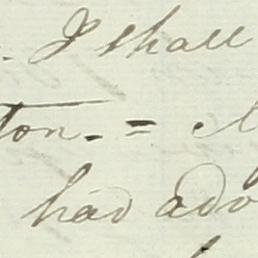 . I shall
ton. =
had ado